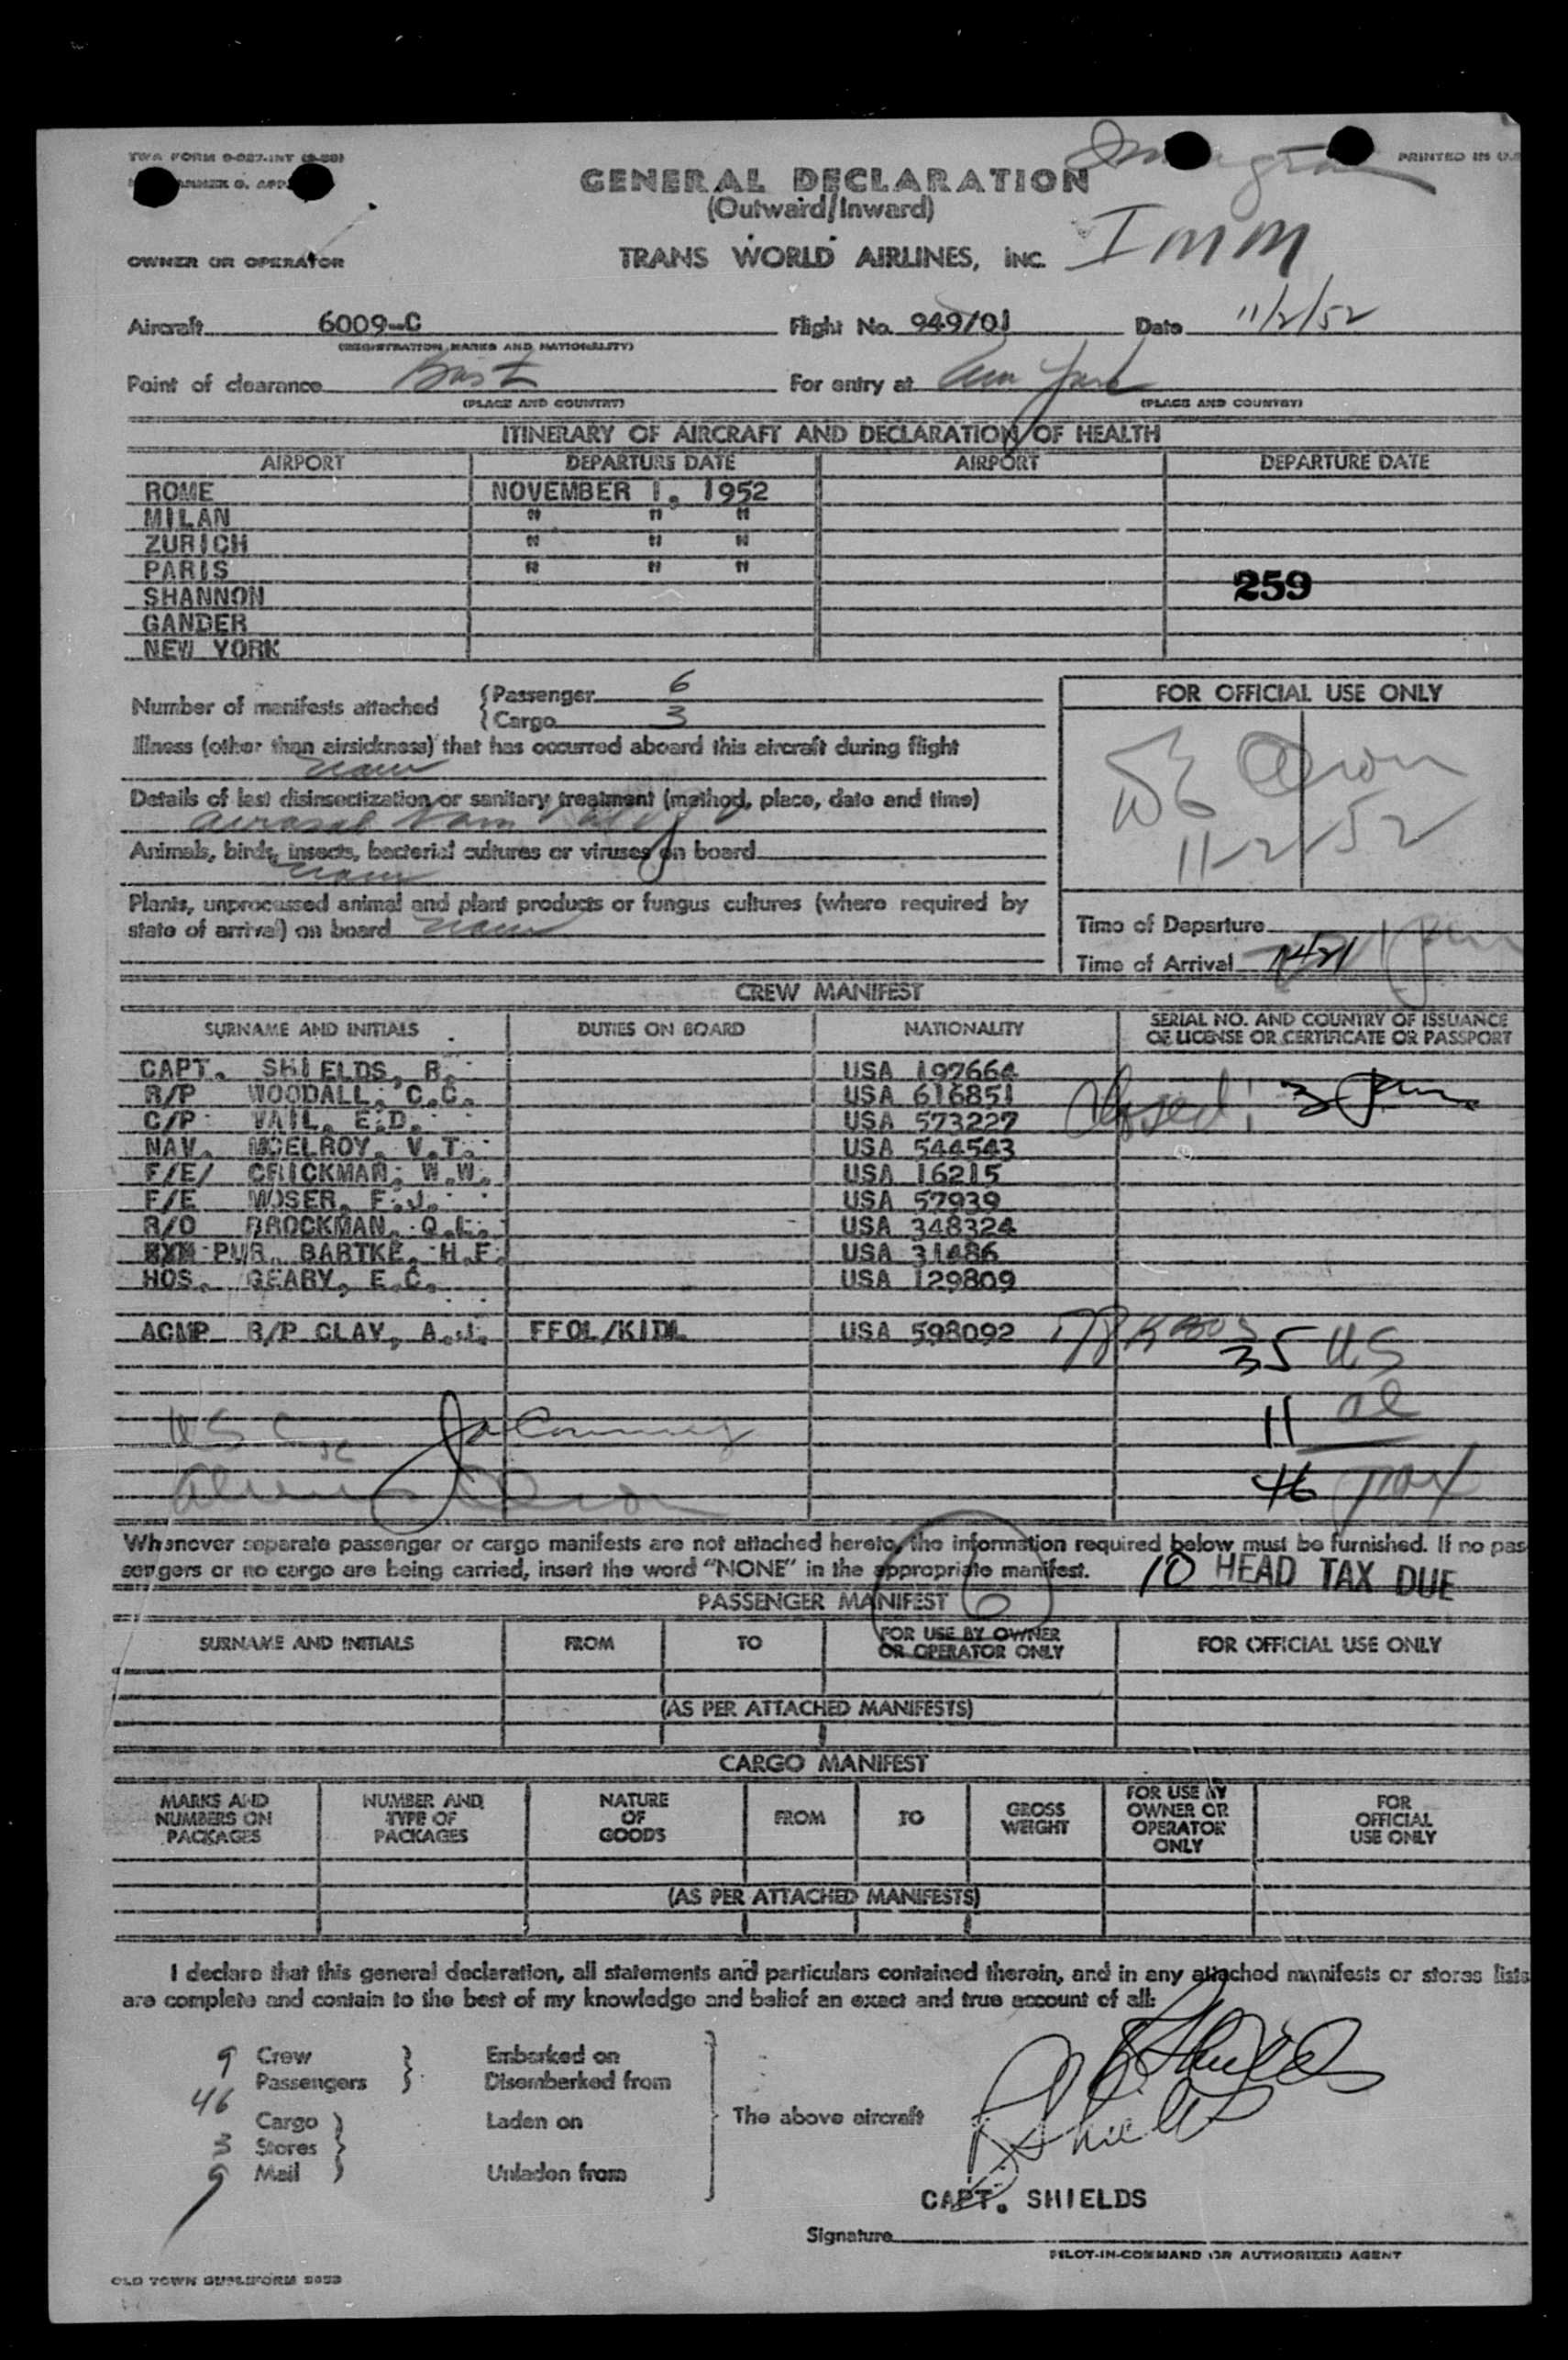 TWA FORM
PRINTED IN U.S
GENERAL DECLARATION
(Outward/Inward)
Imm
OWNER OR OPERATOR TRANS WORLD AIRLINES, INC.
Aircraft 6009-C Flight No. 949/01 Date 11/2/52
(REGISTRATION MARKS AND NATIONALITY)
Point of clearance For entry at New York
(PLACE AND COUNTRY) (PLACE AND COUNTRY)
ITINERARY OF AIRCRAFT AND DECLARATION OF HEALTH
AIRPORT DEPARTURE DATE AIRPORT DEPARTURE DATE
ROME NOVEMBER 1, 1952
MILAN " " "
ZURICH " " "
PARIS " " "
259
SHANNON
GANDER
NEW YORK
Number of manifests attached
{Passenger 6
{Cargo 3
FOR OFFICIAL USE ONLY
Illness (other than airsickness) that has occurred aboard this aircraft during flight
Details of last disinsectization or sanitary treatment (method, place, date and time)
aerosol
11-2-52
Animals, birds, insects, bacterial cultures or viruses on board
Plants, unprocessed animal and plant products or fungus cultures (where required by
state of arrival) on board
Time of Departure
Time of Arrival
CREW MANIFEST
SURNAME AND INITIALS DUTIES ON BOARD NATIONALITY SERIAL NO. AND COUNTRY OF ISSUANCE
OF LICENSE OR CERTIFICATE OR PASSPORT
CAPT. SHIELDS, R. USA 197664
R/P WOODALL, C.C. USA 616851
C/P VAIL, E.D. USA 573227
NAV. MCELROY, V.T. USA 544543
F/E/ CRICKMAN, W.W. USA 16215
F/E MOSER, F.J. USA 57939
R/O BROCKMAN, O.L. USA 348324
PUR. BARTKE, H.F. USA 31486
HOS. GEARY, E.C. USA 129809
ACMP R/P CLAY, A.J. FFOL/KIDL USA 598092
35 US
11 al
46 pax
Whenever separate passenger or cargo manifests are not attached hereto, the information required below must be furnished. If no pas-
sengers or no cargo are being carried, insert the word "NONE" in the appropriate manifest.
10 HEAD TAX DUE
6
PASSENGER MANIFEST
SURNAME AND INITIALS FROM TO FOR USE BY OWNER
OR OPERATOR ONLY FOR OFFICIAL USE ONLY
(AS PER ATTACHED MANIFESTS)
CARGO MANIFEST
MARKS AND
NUMBERS ON
PACKAGES NUMBER AND
TYPE OF
PACKAGES NATURE
OF
GOODS FROM TO GROSS
WEIGHT FOR USE BY
OWNER OR
OPERATOR
ONLY FOR
OFFICIAL
USE ONLY
(AS PER ATTACHED MANIFESTS)
I declare that this general declaration, all statements and particulars contained therein, and in any attached manifests or stores lists
are complete and contain to the best of my knowledge and belief an exact and true account of all:
9 Crew } Embarked on
46 Passengers } Disembarked from
The above aircraft
Cargo } Laden on
3 Stores }
9 Mail } Unladen from
R Shields
R Shields
CAPT. SHIELDS
Signature
PILOT-IN-COMMAND OR AUTHORIZED AGENT
OLD TOWN DUPLIFORM